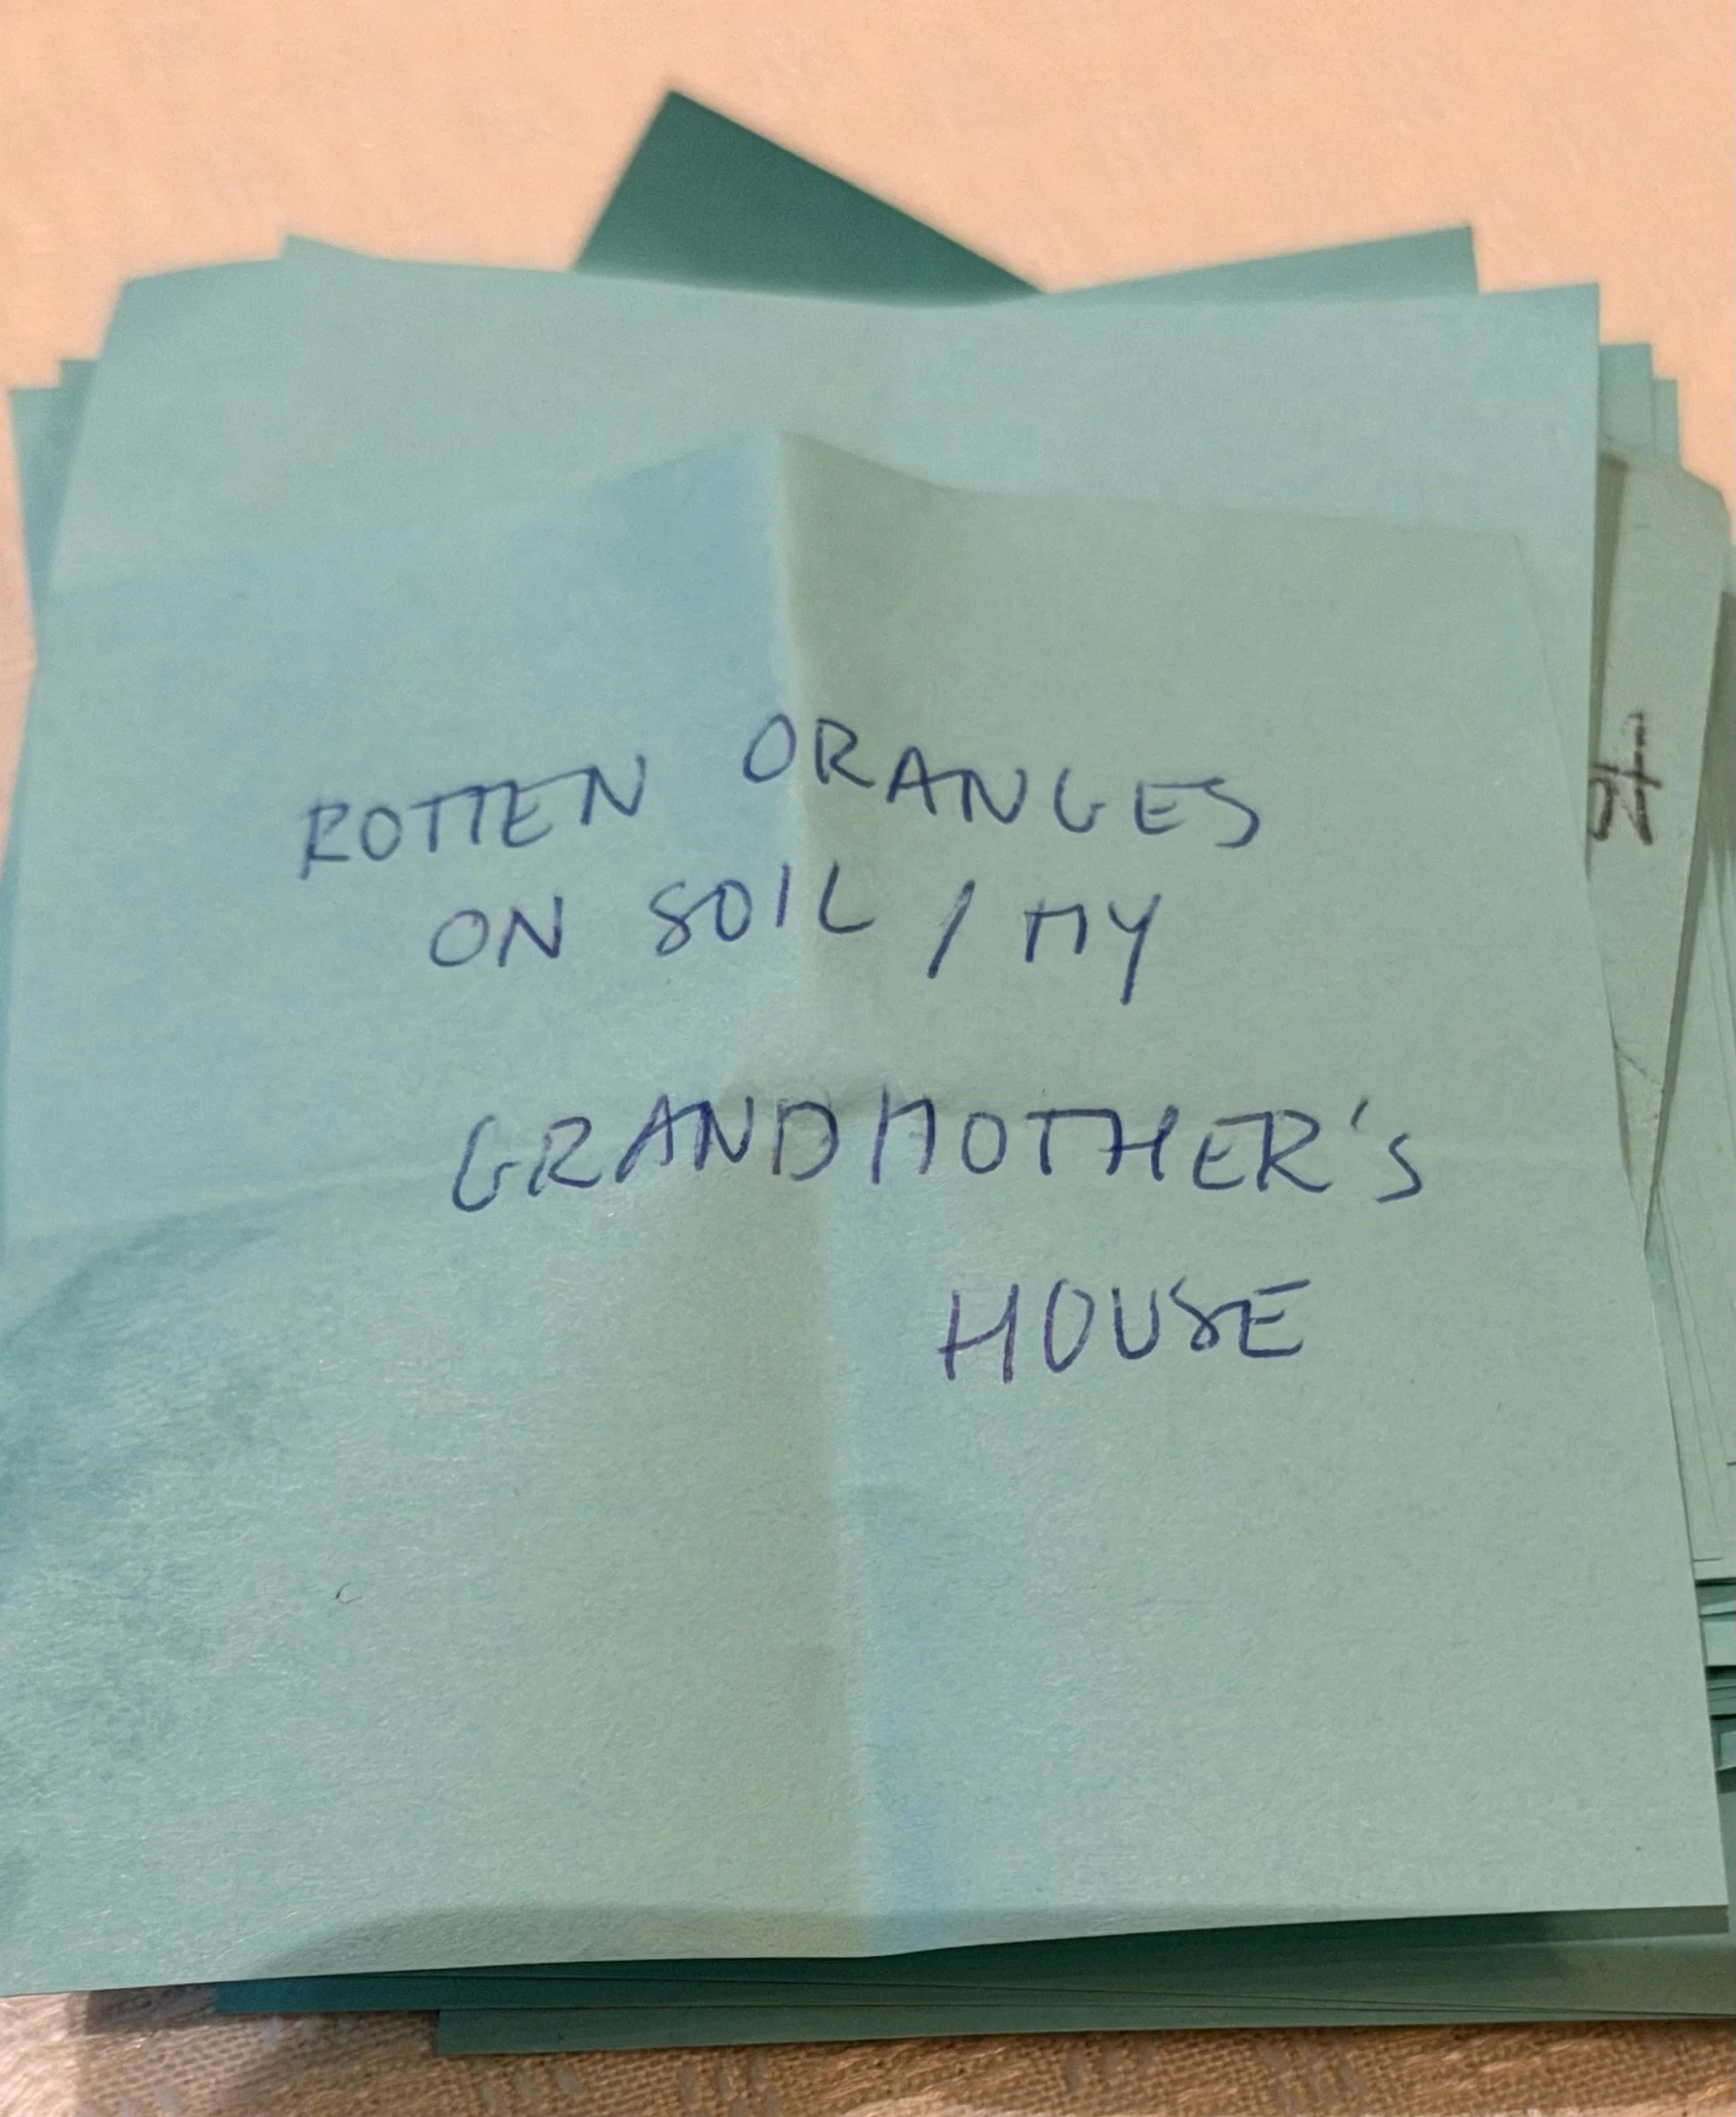 ROTTEN ORANGES
ON SOIL / MY
GRANDMOTHER'S
HOUSE